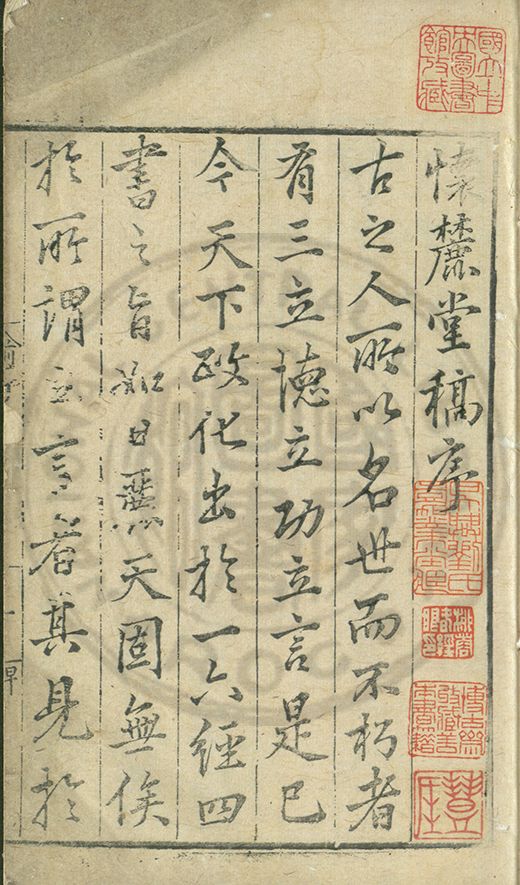 懷麓堂稿序
古之人所以名世而不朽者
有三立德立功立言是已
今天下政化出於一六經四
書之旨如日麗天固無俟
於所謂立言者其見於
國立中央圖書館收藏
吳興劉氏嘉業堂藏